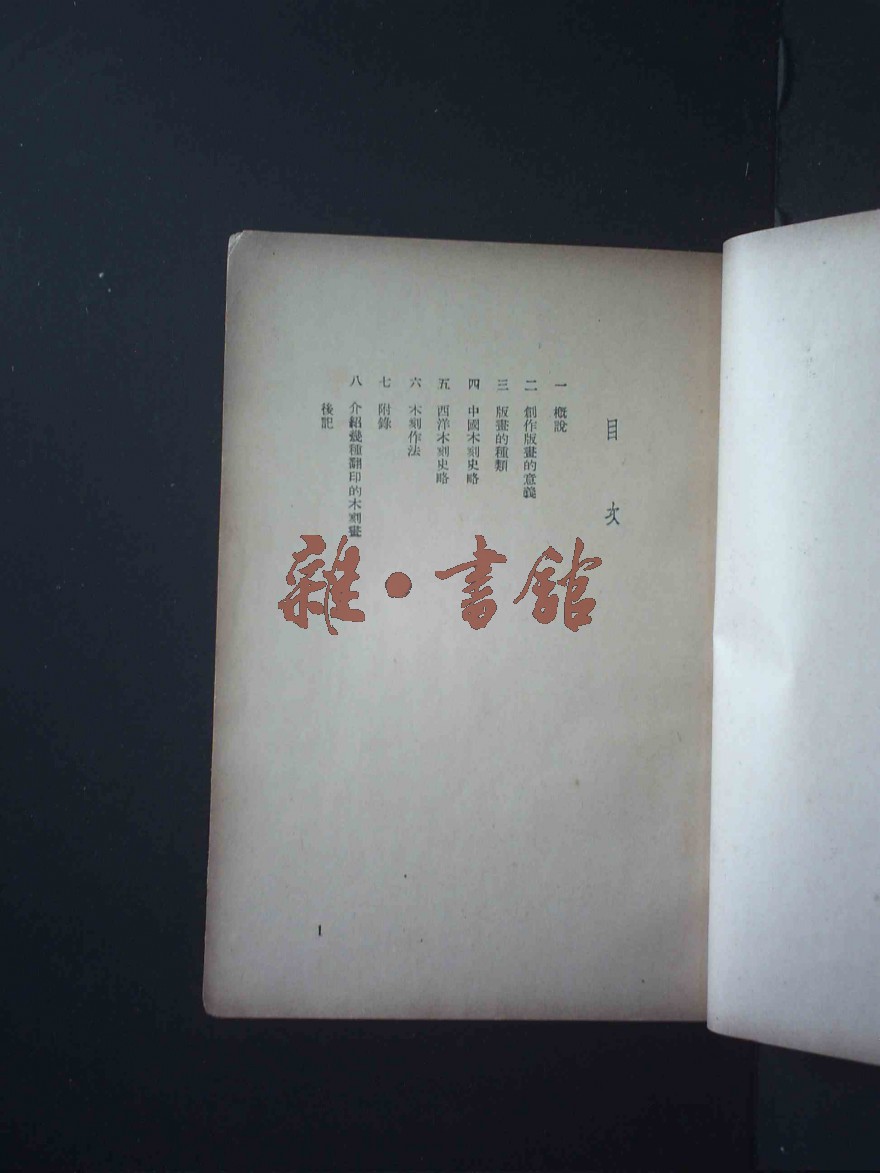 目次
一 概說
二 創作版畫的意義
三 版畫的種類
四 中國木刻史略
五 西洋木刻史略
六 木刻作法
七 附錄
八 介紹幾種翻印的木刻畫
後記
雜·書館
1